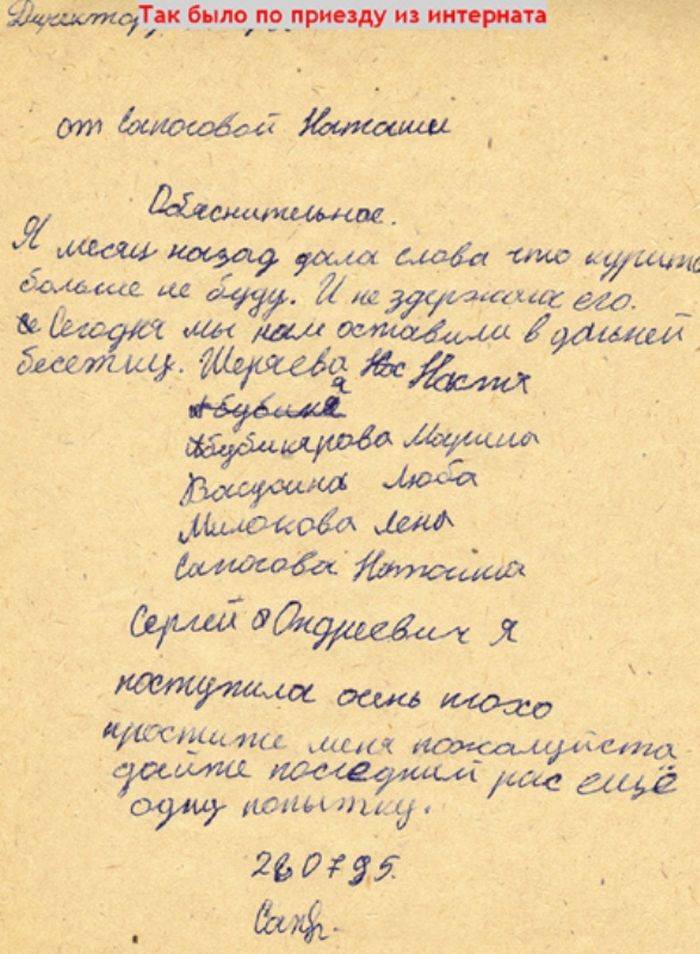 Так было по приезду из интерната
Директору
от Сапоговой Наташи
Обяснительное.
Я месяц назад дала слова что курить
больше не буду. И не здержала его.
Сегодня мы нам оставили в дальней
беседкиц. Ширяева Настя
Абубикярова Марина
Васудина Люба
Милокова Лена
Сапогова Наташа
Сергей Ондреевич я
поступила осень плохо
простите меня пожалуйста
дайте последний рас ещё
одну попытку.
280795.
Сап